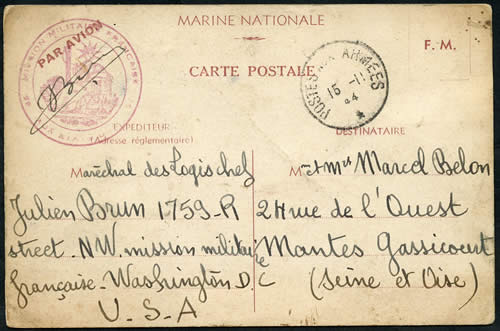 MARINE NATIONALE
MISSION MILITAIRE FRANÇAISE
PAR AVION
F. M.
CARTE POSTALE
POSTES AUX ARMÉES
15 -11
44
EXPÉDITEUR
(Adresse réglementaire)
DESTINATAIRE
Maréchal des Logis chef
Julien Brun 1759-R
street. NW. mission militaire
française - Washington D.C
U.S.A
M. et Mme Marcel Belon
24 rue de l'Ouest
Mantes Gassicourt
(Seine et Oise)